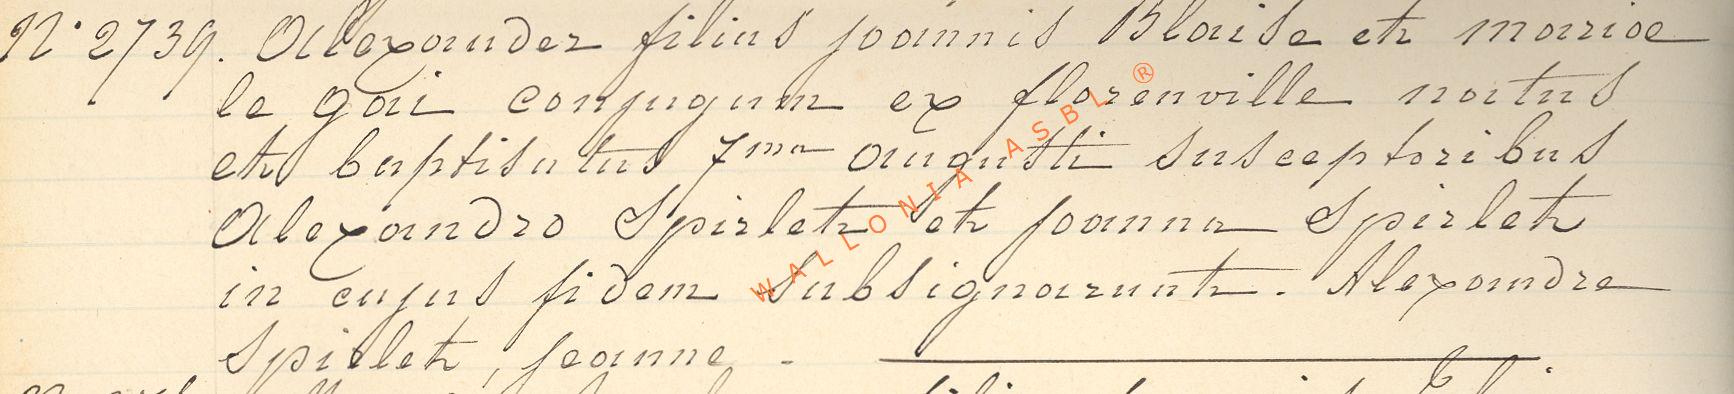 N° 2739. Alexander filius joannis Blaise et mariae
le gai conjugum ex florenville natus
et baptisatus 7ma augusti susceptoribus
Alexandro Spirlet et joanna Spirlet
in cujus fidem subsignarunt. Alexandre
Spirlet, jeanne -
WALLONIA ASBL ®